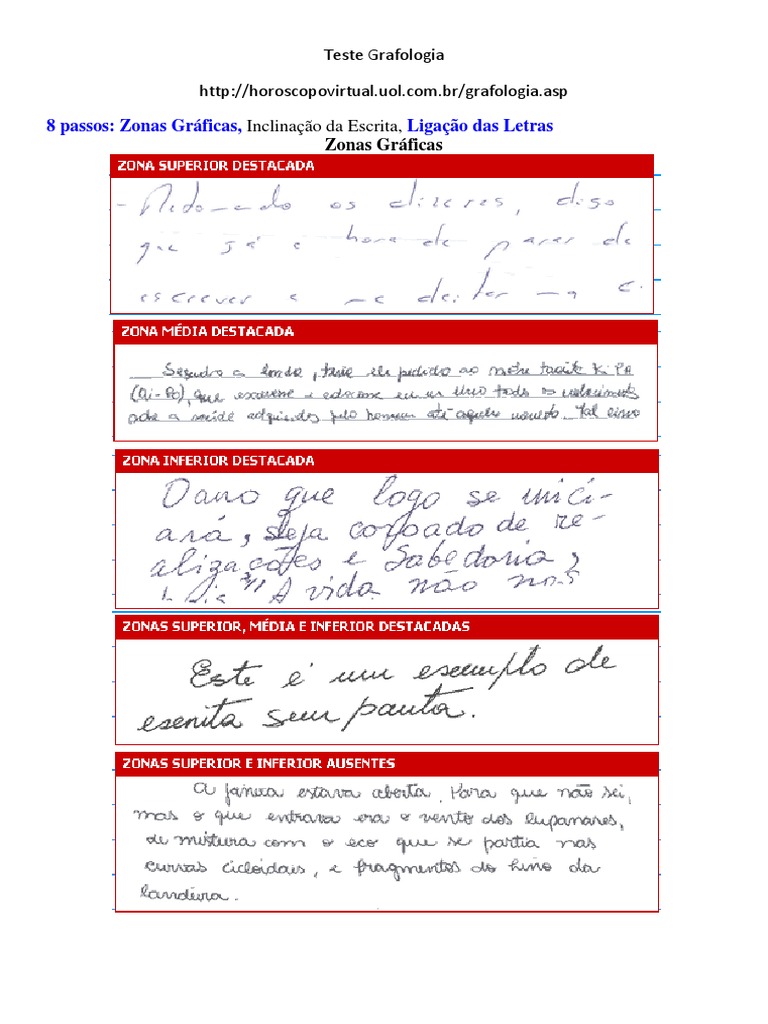 Teste Grafologia
http://horoscopovirtual.uol.com.br/grafologia.asp
8 passos: Zonas Gráficas, Inclinação da Escrita, Ligação das Letras
Zonas Gráficas
ZONA SUPERIOR DESTACADA
- os dizeres, digo
que já é hora de parar de
escrever e me deitar
ZONA MÉDIA DESTACADA
Segundo a lenda, pedido ao Ki Pa
(Qi-Po), que escrevesse e todos os
a saúde pelo homem até aquele momento. Tal
ZONA INFERIOR DESTACADA
O ano que logo se inici-
ará, seja coroado de re-
alizações e Sabedoria,
A vida não nos
ZONAS SUPERIOR, MÉDIA E INFERIOR DESTACADAS
Este é um exemplo de
escrita sem pauta.
ZONAS SUPERIOR E INFERIOR AUSENTES
A janela estava aberta. Para que não sei,
mas o que entrava era o vento dos lupanares,
de mistura com o eco que se partia nas
curvas cicloidais, e fragmentos do hino da
bandeira.